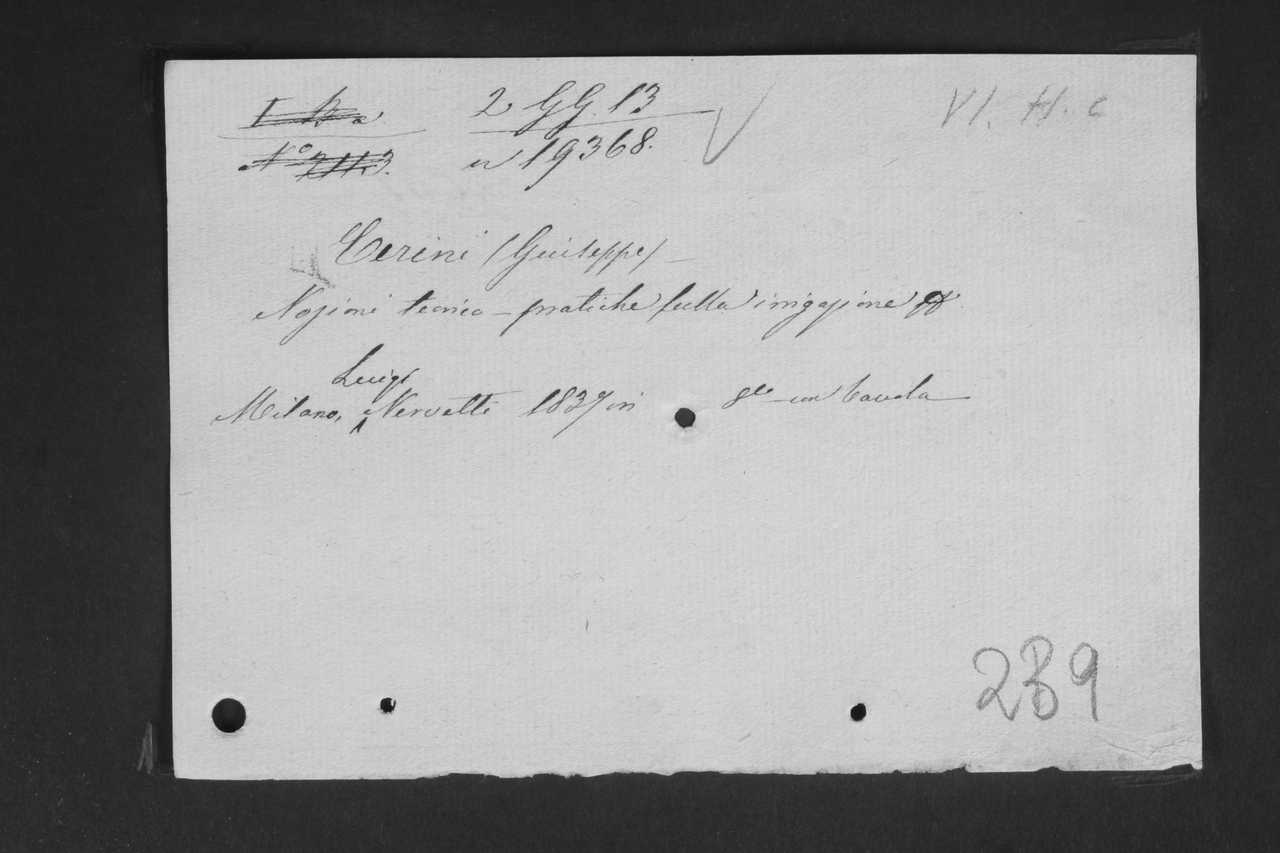 I B a 2 GG. 13 VI. H. c
N° 7113. n 19368.
Cerini (Giuseppe) _
Nozioni tecnico - pratiche sulla irrigazione
Luigi
Milano, Nervetti 1837 in 8vo con tavola
2B9